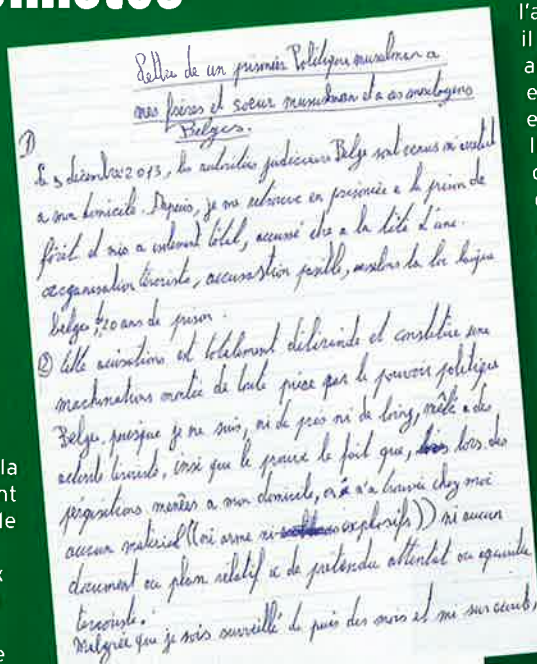 l'a
il
a
e
e
l
la
nt
le
x
e
Lettre de un prisonnié Politique musulman a
mes frères et soeur musulman et a as
Belges.
①
Le 3 décembre 2013, les autorités judiciaire Belge sont venus m
a mon domicile. Depuis, je me retrouve en prisonnié a la prison de
forêt et mis a isolement total, accusé etre a la tête d'une
organisation terroriste, accusastion pasible, la loi
belge, 20 ans de prison.
② Cette acusations est totalement délirinde et constitue une
machinations montée de toute pièce par le pouvoir politique
Belge, puisque je ne suis, ni de près ni de loing, mêlé a des
terroriste, insi que le prouve le fait que, lors des
perqisitions menées a mon domicile, on n'a trouvée chez moi
aucun matériel ((ni arme ni explosifs)) ni aucun
document ou plan relatif a de prétendu attentat ou
terroriste.
Malgrée que je sois surveillé de puis des mois et mi sur